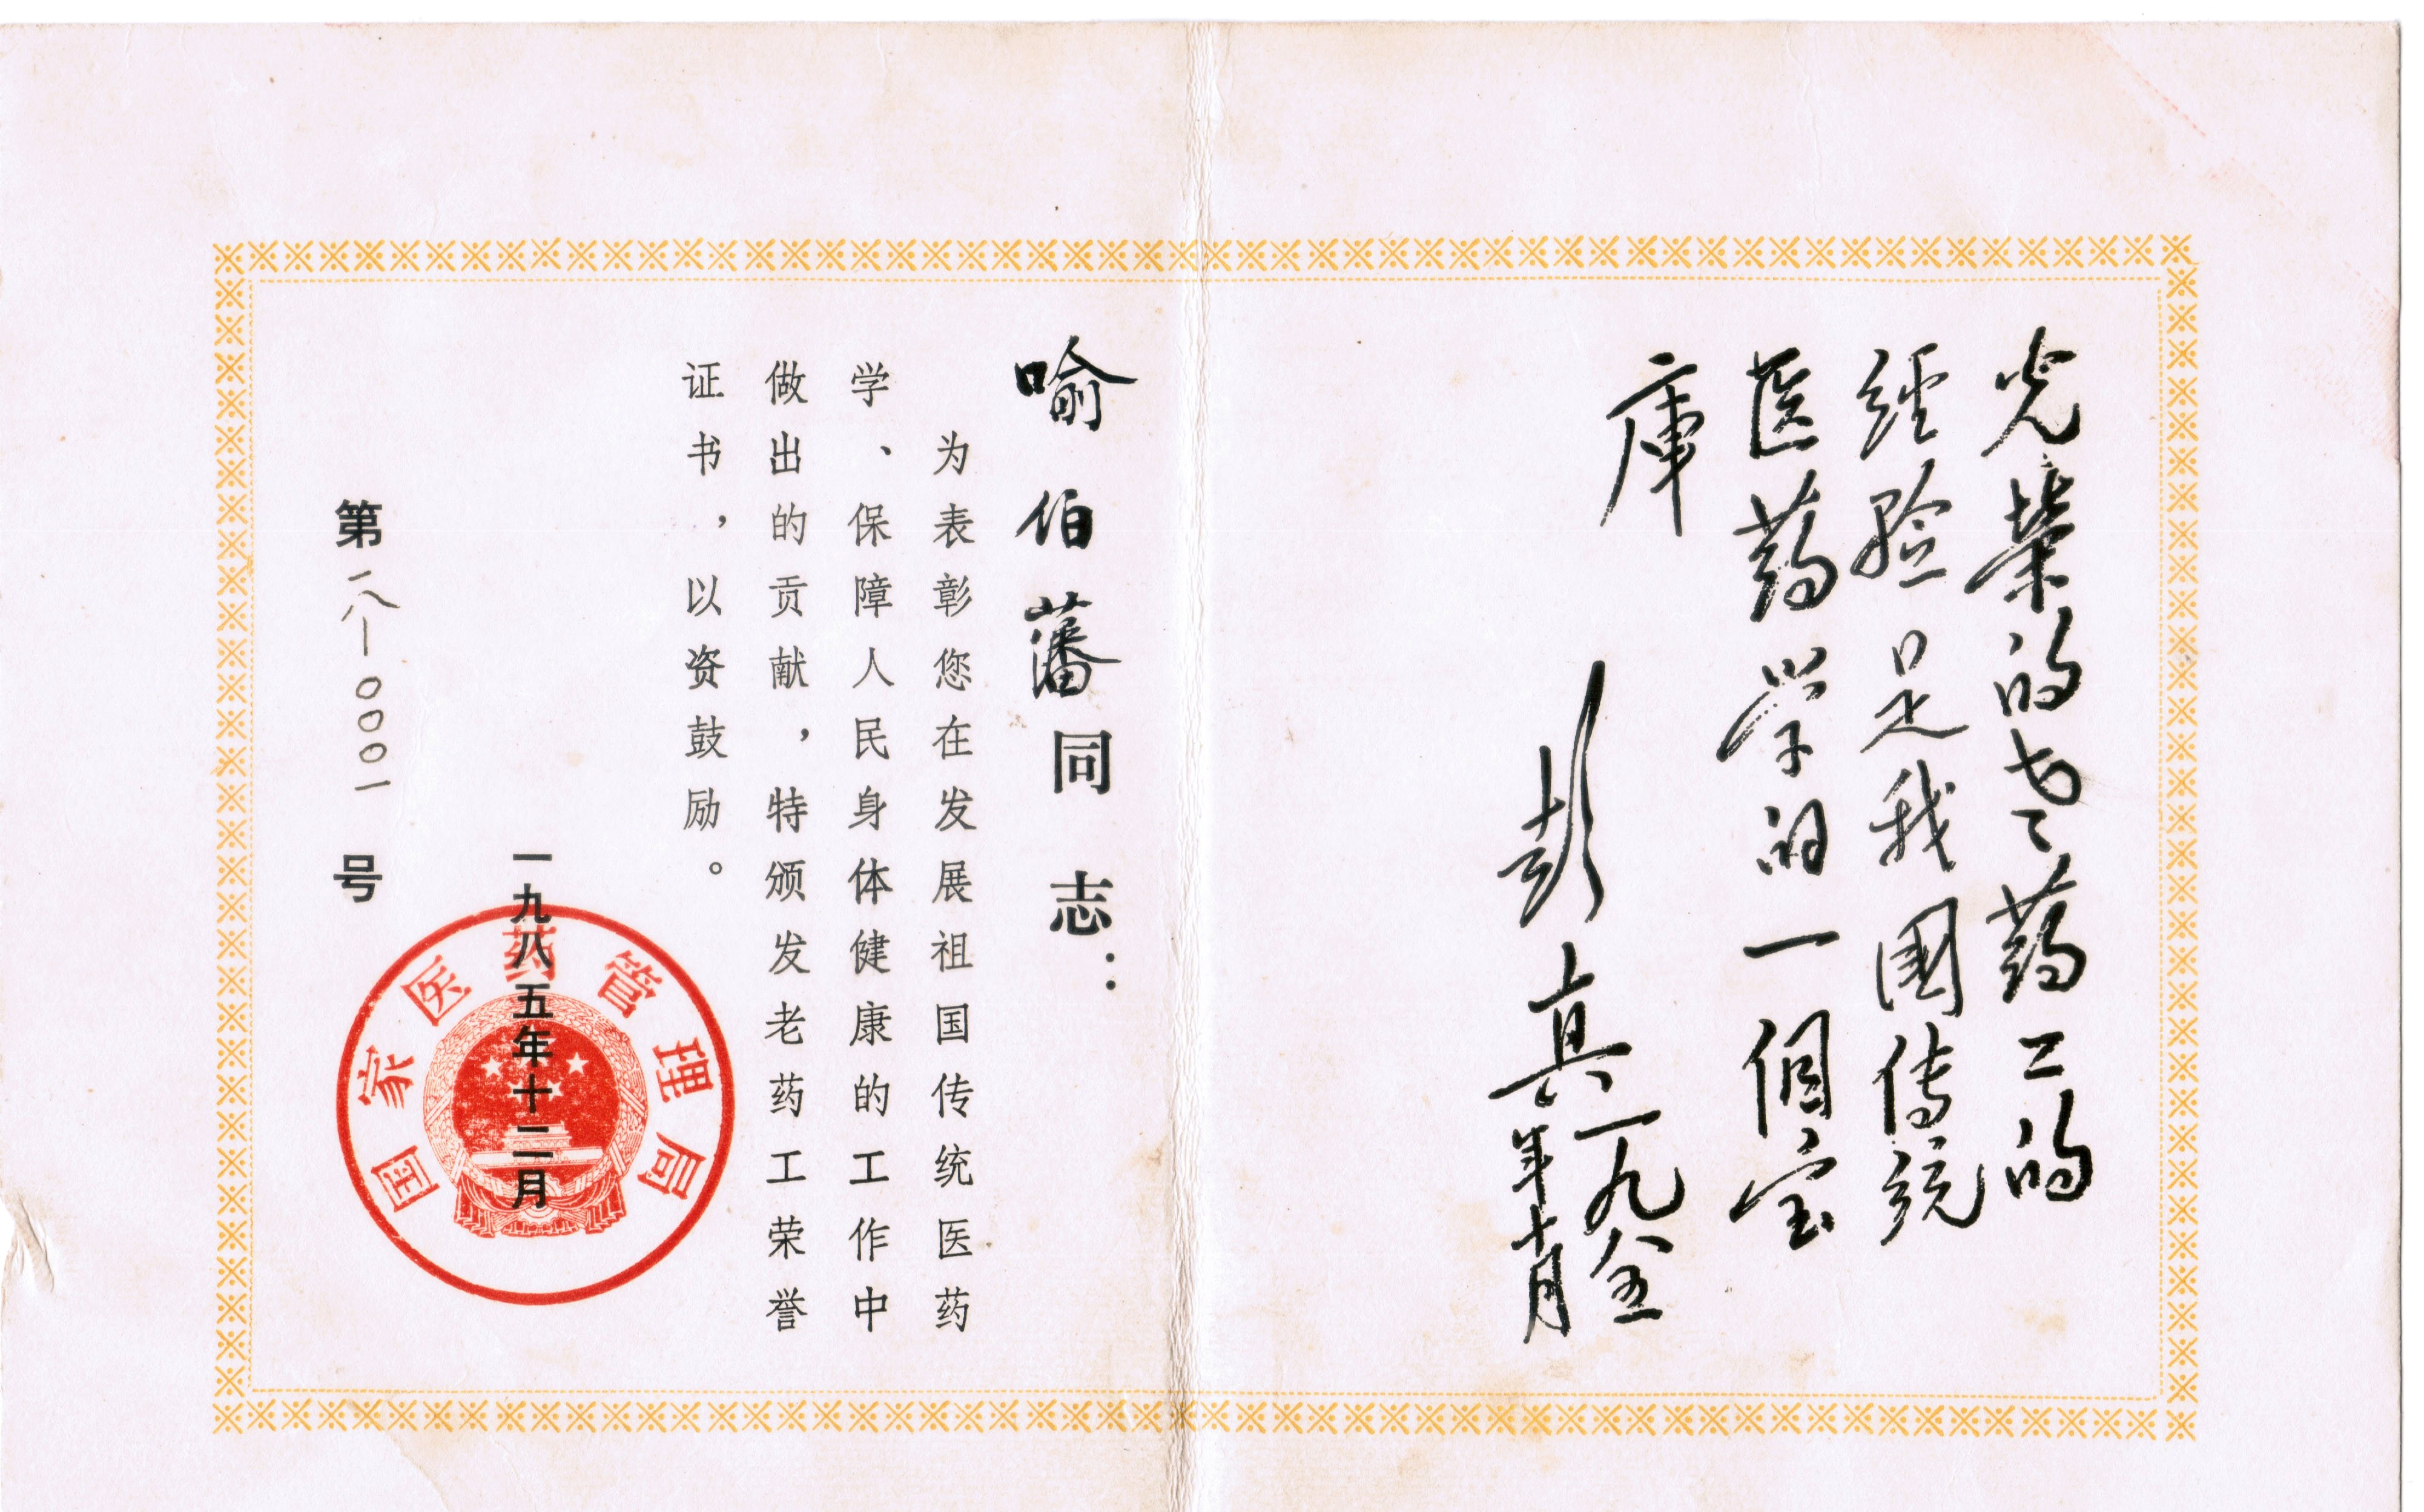 光荣的老药工的
经验是我國传统
医药学的一個宝
庫
彭真一九八五
年十月
喻伯藩同志：
为表彰您在发展祖国传统医药
学、保障人民身体健康的工作中
做出的贡献，特颁发老药工荣誉
证书，以资鼓励。
一九八五年十二月
国家医药管理局
第一八—〇〇〇一号